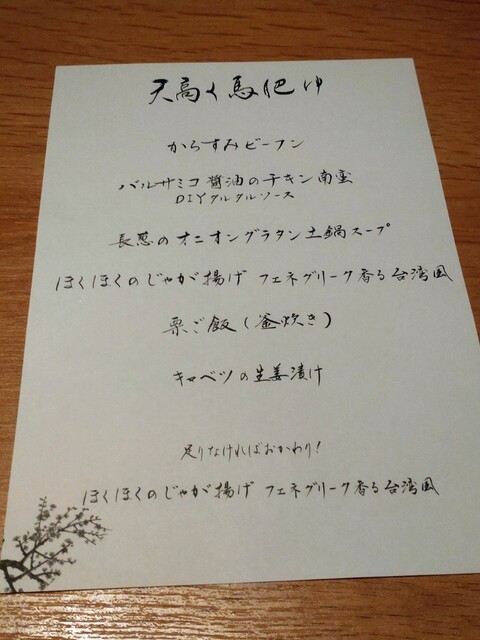 天高く馬肥ゆ
からすみビーフン
バルサミコ醤油のチキン南蛮
DIYタルタルソース
長葱のオニオングラタン土鍋スープ
ほくほくのじゃが揚げ フェネグリーク香る台湾風
栗ご飯(釜炊き)
キャベツの生姜漬け
足りなければおかわり!
ほくほくのじゃが揚げ フェネグリーク香る台湾風